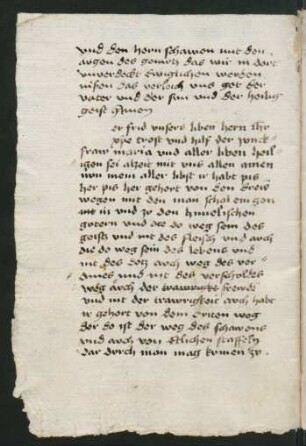 vnd den hern schawen mit den
augen des gemutz das wir in dort
vnverdeckt Ewiglichen werden
nissen das verleich vns got der
vater vnd der sun vnd der heilig
geist Amen
er frid vnsers liben hern Jhu
xpi trost vnd hilf der junck
fraw maria vnd aller liben heil
igen sei alzeit mit vns allen amen
Nun mein aller libst ir habt pis
her pis her gehort von den wegen
mit den man schol
vnd zu den himelischen
gotern vnd die do weg sein des
geistz vnd nit des fleisch vnd auch
die do weg sein des lebens vnd
nit des dotz auch weg des ver
dines vnd nit des verschuldes
weg auch der
vnd nit der trawrigkeit auch habt
ir gehort von dem weg
der do ist der weg des schawens
vnd auch von Etlichen staffeln
dar durch man mag kumen zu